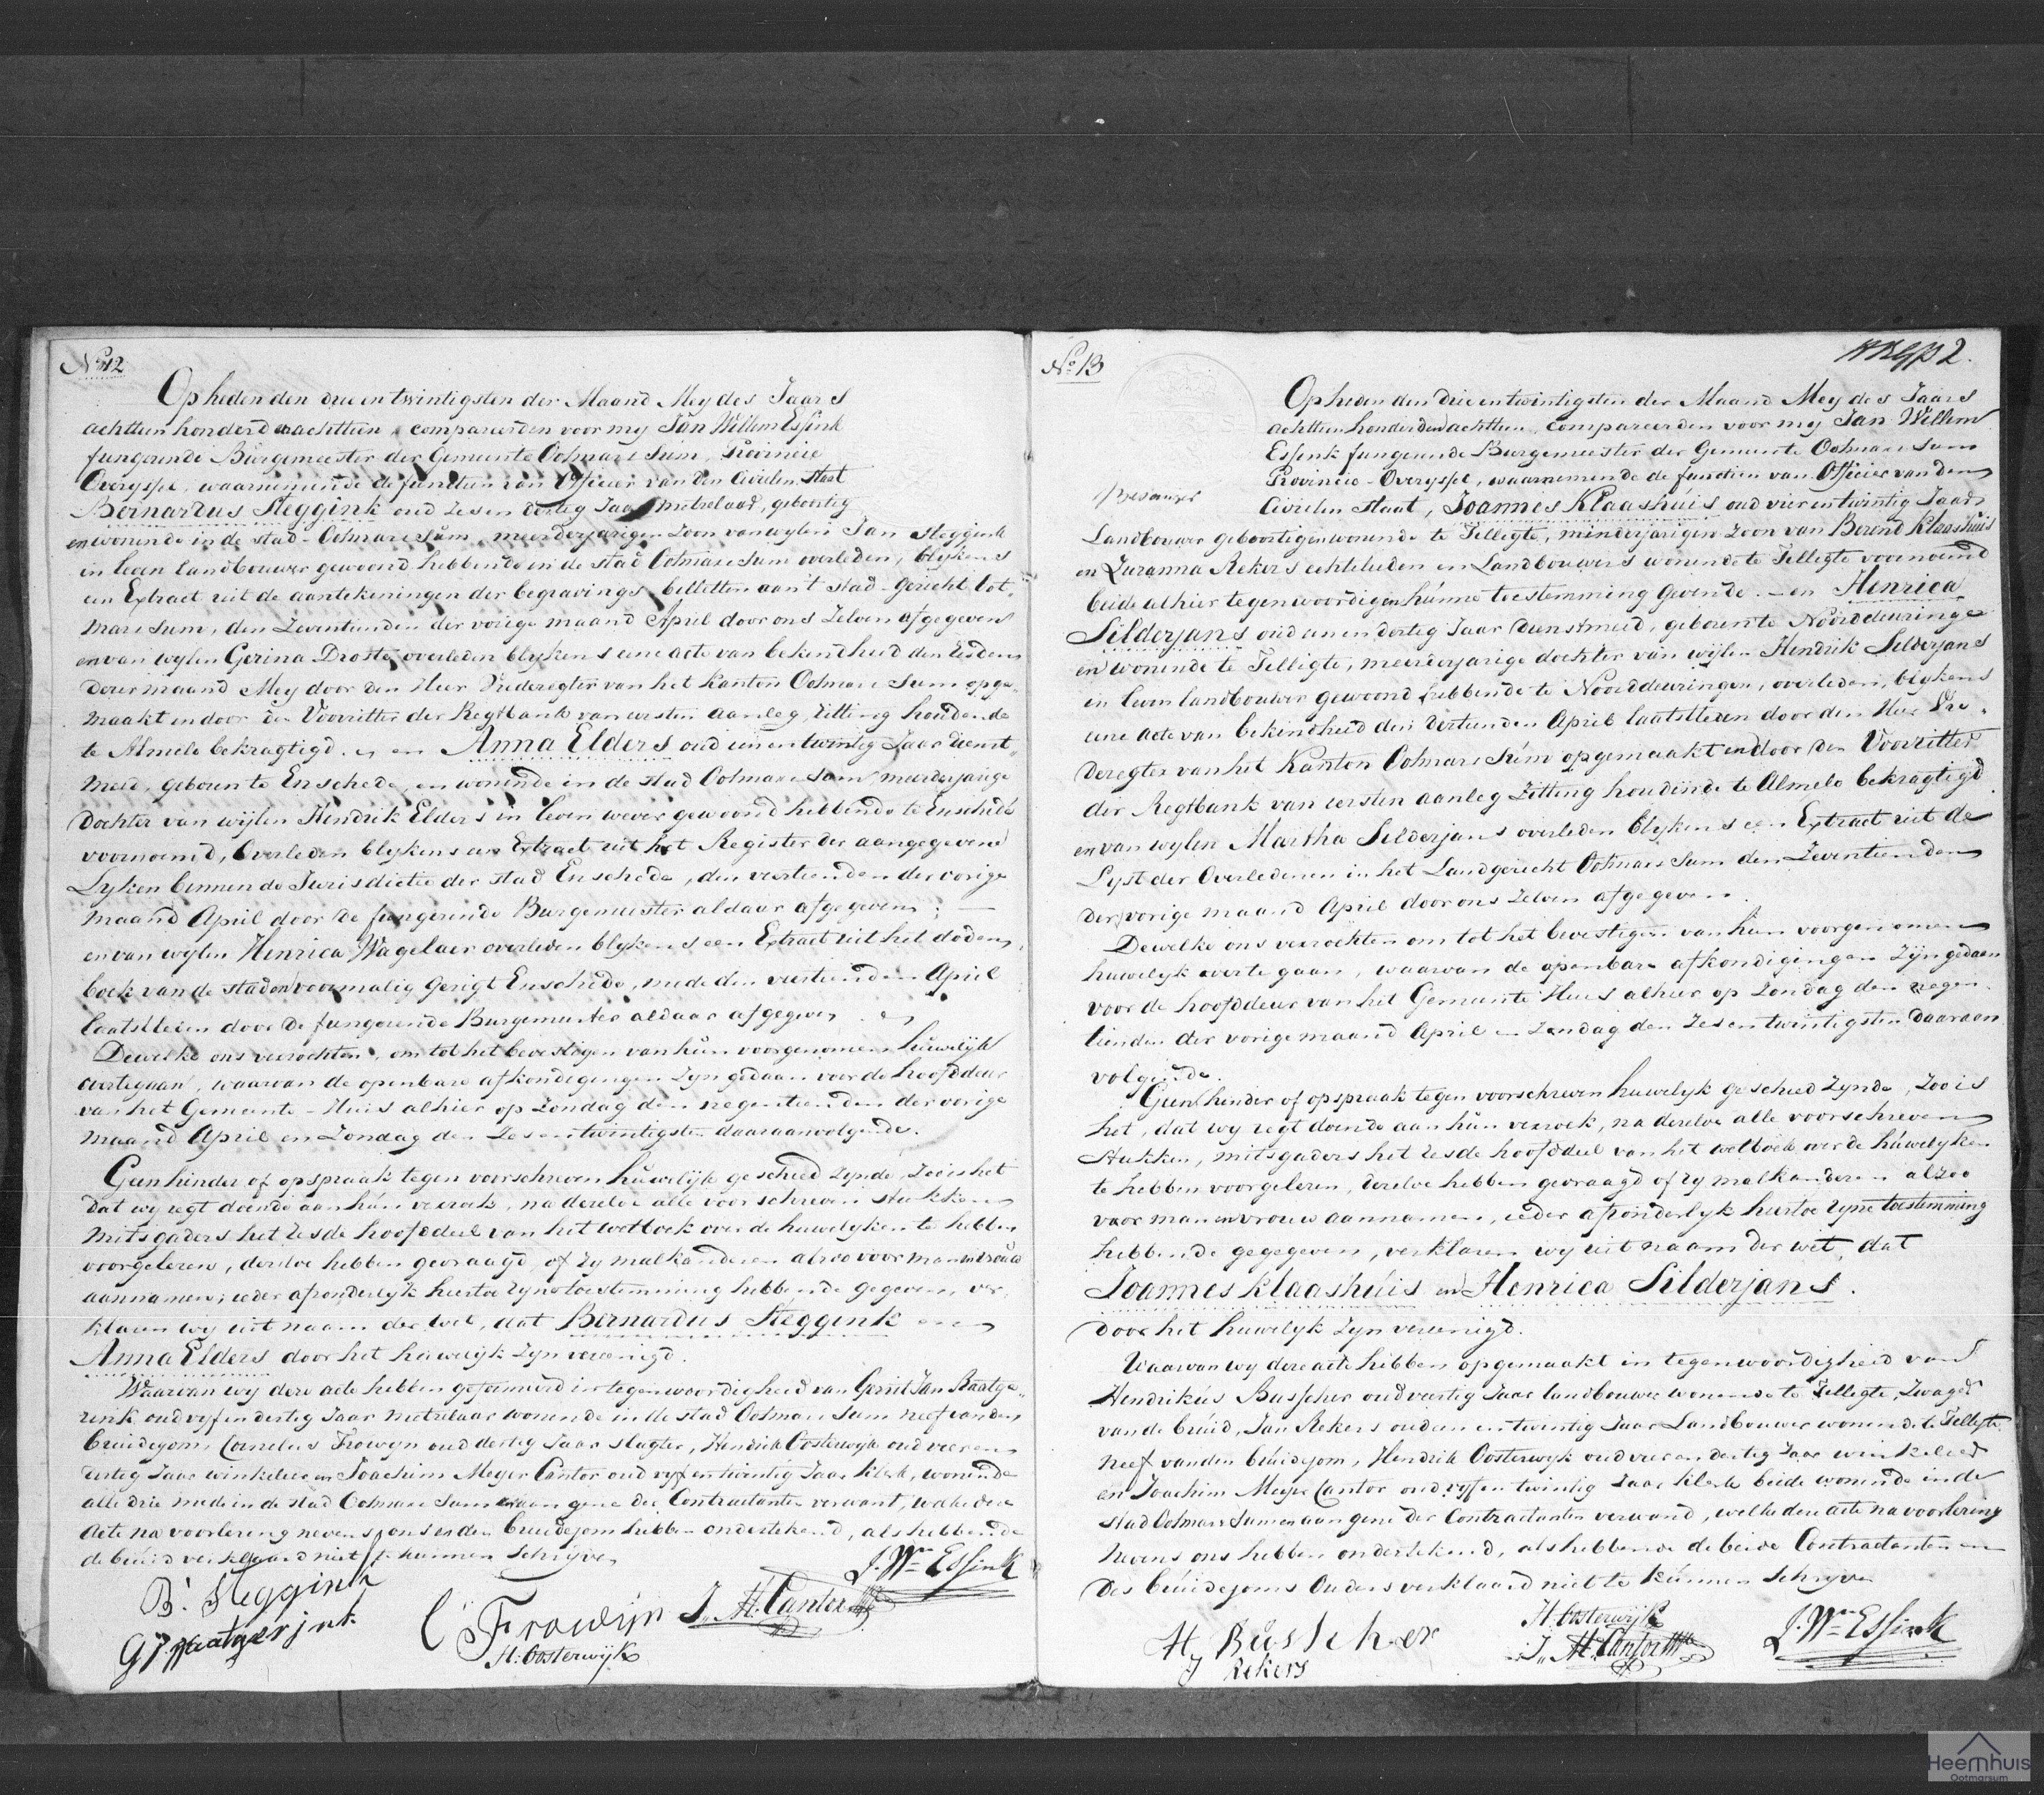 No 12
Op heden den drie en twintigsten der Maand Mey des Jaars
achttien honderd en achttien, compareerden voor my Jan Willem Essink
fungeerende Burgemeester der Gemeente Ootmarssum, Provincie
Overyssel, waarnemende de functien van Officier van den Civielen Staat
Bernardus Steggink oud zes en dertig Jaar metselaar, geboortig
en wonende in de stad Ootmarssum, meerderjarigen Zoon van wylen Jan Steggink
in leven landbouwer gewoond hebbende in de stad Ootmarssum overleden, blykens
een Extract uit de aantekeningen der begravings billetten aan't stad-Gericht Oot-
marssum, den Zeventienden der vorige maand April door ons Zelven afgegeven
en van wylen Gerina Droste, overleden blykens eene acte van bekendheid den
dezer maand Mey door den Heer Vrederegter van het kanton Ootmarssum opge-
maakt en door den Voorzitter der Regtbank van eersten aanleg, Zitting houdende
te Almelo bekragtigd. en Anna Elders oud een en twintig Jaar dienst-
meid, geboren te Enschede, en wonende in de stad Ootmarssum meerderjarige
dochter van wijlen Hendrik Elders in leven wever gewoond hebbende te Enschede
voornoemd, Overleden blykens een Extract uit het Register der aangegevene
Lyken binnen de Jurisdictie der stad Enschede, den veertienden der vorige
maand April door de fungerende Burgemeester aldaar afgegeven;
en van wylen Henrica Wagelaer overleden blykens een Extract uit het doden
boek van de stad en voormalig Gerigt Enschede, mede den veertienden April
laatstleden door de fungerende Burgemeester aldaar afgegeven.
Dewelke ons verzochten, om tot het bevestigen van hun voorgenomen huwelijk
overtegaan, waarvan de openbare afkondigingen Zyn gedaan voor de hoofddeur
van het Gemeente-Huis alhier op Zondag den negentienden der vorige
maand April en Zondag den Zes en twintigsten daaraanvolgende.
Geen hinder of opspraak tegen voorschreven huwelijk geschied zynde, zoo is het
dat wy regt doende aan hun verzoek, na dezelve alle voorschreven stukken
mitsgaders het zesde hoofddeel van het wetboek over de huwelyken te hebben
voorgelezen, dezelve hebben gevraagd, of zy malkanderen alzoo voor man en vrouw
aannamen; ieder afzonderlyk hiertoe zyne toestemming hebbende gegeven, ver-
klaren wy uit naam der wet, dat Bernardus Steggink en
Anna Elders door het huwelyk zyn vereenigd.
Waarvan wy deze acte hebben geformeerd in tegenwoordigheid van Gerrit Jan Raatge-
rink oud vyf en dertig Jaar metselaar wonende in de stad Ootmarssum neef van den
bruidegom, Cornelus Frowyn oud dertig Jaar slagter, Hendrik Oosterwyk oud vier en
dertig Jaar winkelier en Joachim Meyer Cantor oud vyf en twintig Jaar klerk, wonende
alle drie mede in de stad Ootmarssum en aan gene der Contractanten verwant, welke deze
acte na voorlezing nevens ons en den bruidegom hebben ondertekend, als hebbende
de bruid verklaard niet te kunnen schryven
J. Wm Essink
B. Steggink
C Frowijn
J. M. Cantor
H. Oosterwijk
No 13
2.
Op heden den drie en twintigsten der Maand Mey des Jaars
achttien honderd en achttien, compareerden voor my Jan Willem
Essink fungeerende Burgemeester der Gemeente Ootmarssum
Provincie Overyssel, waarnemende de functien van Officier van den
Civielen Staat, Joannes Klaashuis oud vier en twintig Jaar
Landbouwer geboortig en wonende te Tilligte, minderjarigen Zoon van Berend Klaashuis
en Zuzanna Rekers echtelieden en Landbouwers wonende te Tilligte voornoemd
beide alhier tegenwoordig en hunne toestemming gevende. - en Henrica
Silderjans oud een en dertig Jaar dienstmeid, geboren te Noorddeuringen
en wonende te Tilligte, meerderjarige dochter van wijlen Hendrik Silderjans
in leven landbouwer gewoond hebbende te Noorddeuringen, overleden, blykens
eene acte van bekendheid den veertienden April laatstleden door den Heer Vre-
deregter van het Kanton Ootmarssum opgemaakt en door den Voorzitter
der Regtbank van eersten aanleg Zitting houdende te Almelo bekragtigd
en van wylen Martha Silderjans overleden blykens een Extract uit de
Lyst der Overledenen in het Landgericht Ootmarssum den Zeventienden
der vorige maand April door ons Zelven afgegeven.
Dewelke ons verzochten om tot het bevestigen van hun voorgenomen
huwelyk over te gaan, waarvan de openbare afkondigingen Zyn gedaan
voor de hoofddeur van het Gemeente Huis alhier op Zondag den negen-
tienden der vorige maand April en Zondag den Zes en twintigsten daaraan
volgende.
Geen hinder of opspraak tegen voorschreven huwelyk geschied zynde, zoo is
het, dat wy regt doende aan hun verzoek, na dezelve alle voorschreven
stukken, mitsgaders het zesde hoofddeel van het wetboek over de huwelyken
te hebben voorgelezen, dezelve hebben gevraagd of zy malkanderen alzoo
voor man en vrouw aannamen, ieder afzonderlyk hiertoe zyne toestemming
hebbende gegegeven, verklaren wy uit naam der wet, dat
Joannes Klaashuis en Henrica Silderjans.
door het huwelyk zyn vereenigd.
Waarvan wy deze acte hebben opgemaakt in tegenwoordigheid van
Hendrikus Busscher oud veertig Jaar landbouwer wonende te Tilligte, Zwager
van de bruid, Jan Rekers oud een en twintig Jaar Landbouwer wonende te Tilligte
neef van den bruidegom, Hendrik Oosterwyk oud vier en dertig Jaar winkelier
en Joachim Meyer Cantor oud vyf en twintig Jaar klerk beide wonende in de
stad Ootmarssum en aan gene der Contractanten verwand, welke deze acte na voorlezing
nevens ons hebben ondertekend, als hebbende de beide Contractanten en
des bruidegoms Ouders verklaard niet te kunnen schryven
H Busscher
J Rekers
H. Oosterwijk
J. M. Cantor
J. Wm Essink
Heemhuis
Ootmarsum